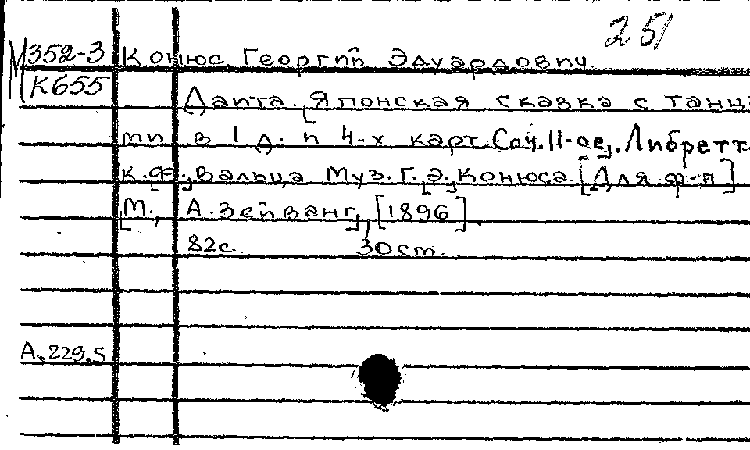 251
М 352-3 Конюс Георгий Эдуардович.
К655
Даита. [Японская сказка с танца
ми в 1 д. и 4-х карт. Соч. 11-ое]. Либретт
к.ф., Вальца Муз. Г. [Э.] Конюса. [Для ф-п]
[М., А. Зейванг], [1896].
82с. 30см.
А.229.5